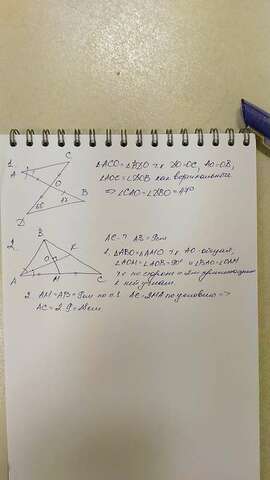 1.
C
A
O
B
D
△ACO=△BDO т.к DO=OC, AO=OB,
∠AOC=∠DOB как вертикальные
=> ∠CAO=∠DBO=47°
2.
B
K
O
A
M
C
AC-? AB=9см
1. △ABO=△AMO т.к AO-общая,
∠AOM=∠AOB=90° и ∠BAO=∠OAM
т.к по стороне и 2м прилежащим
к ней углам
2. AM=AB=9см по п.1 AC=2MA по условию =>
AC=2·9=18см